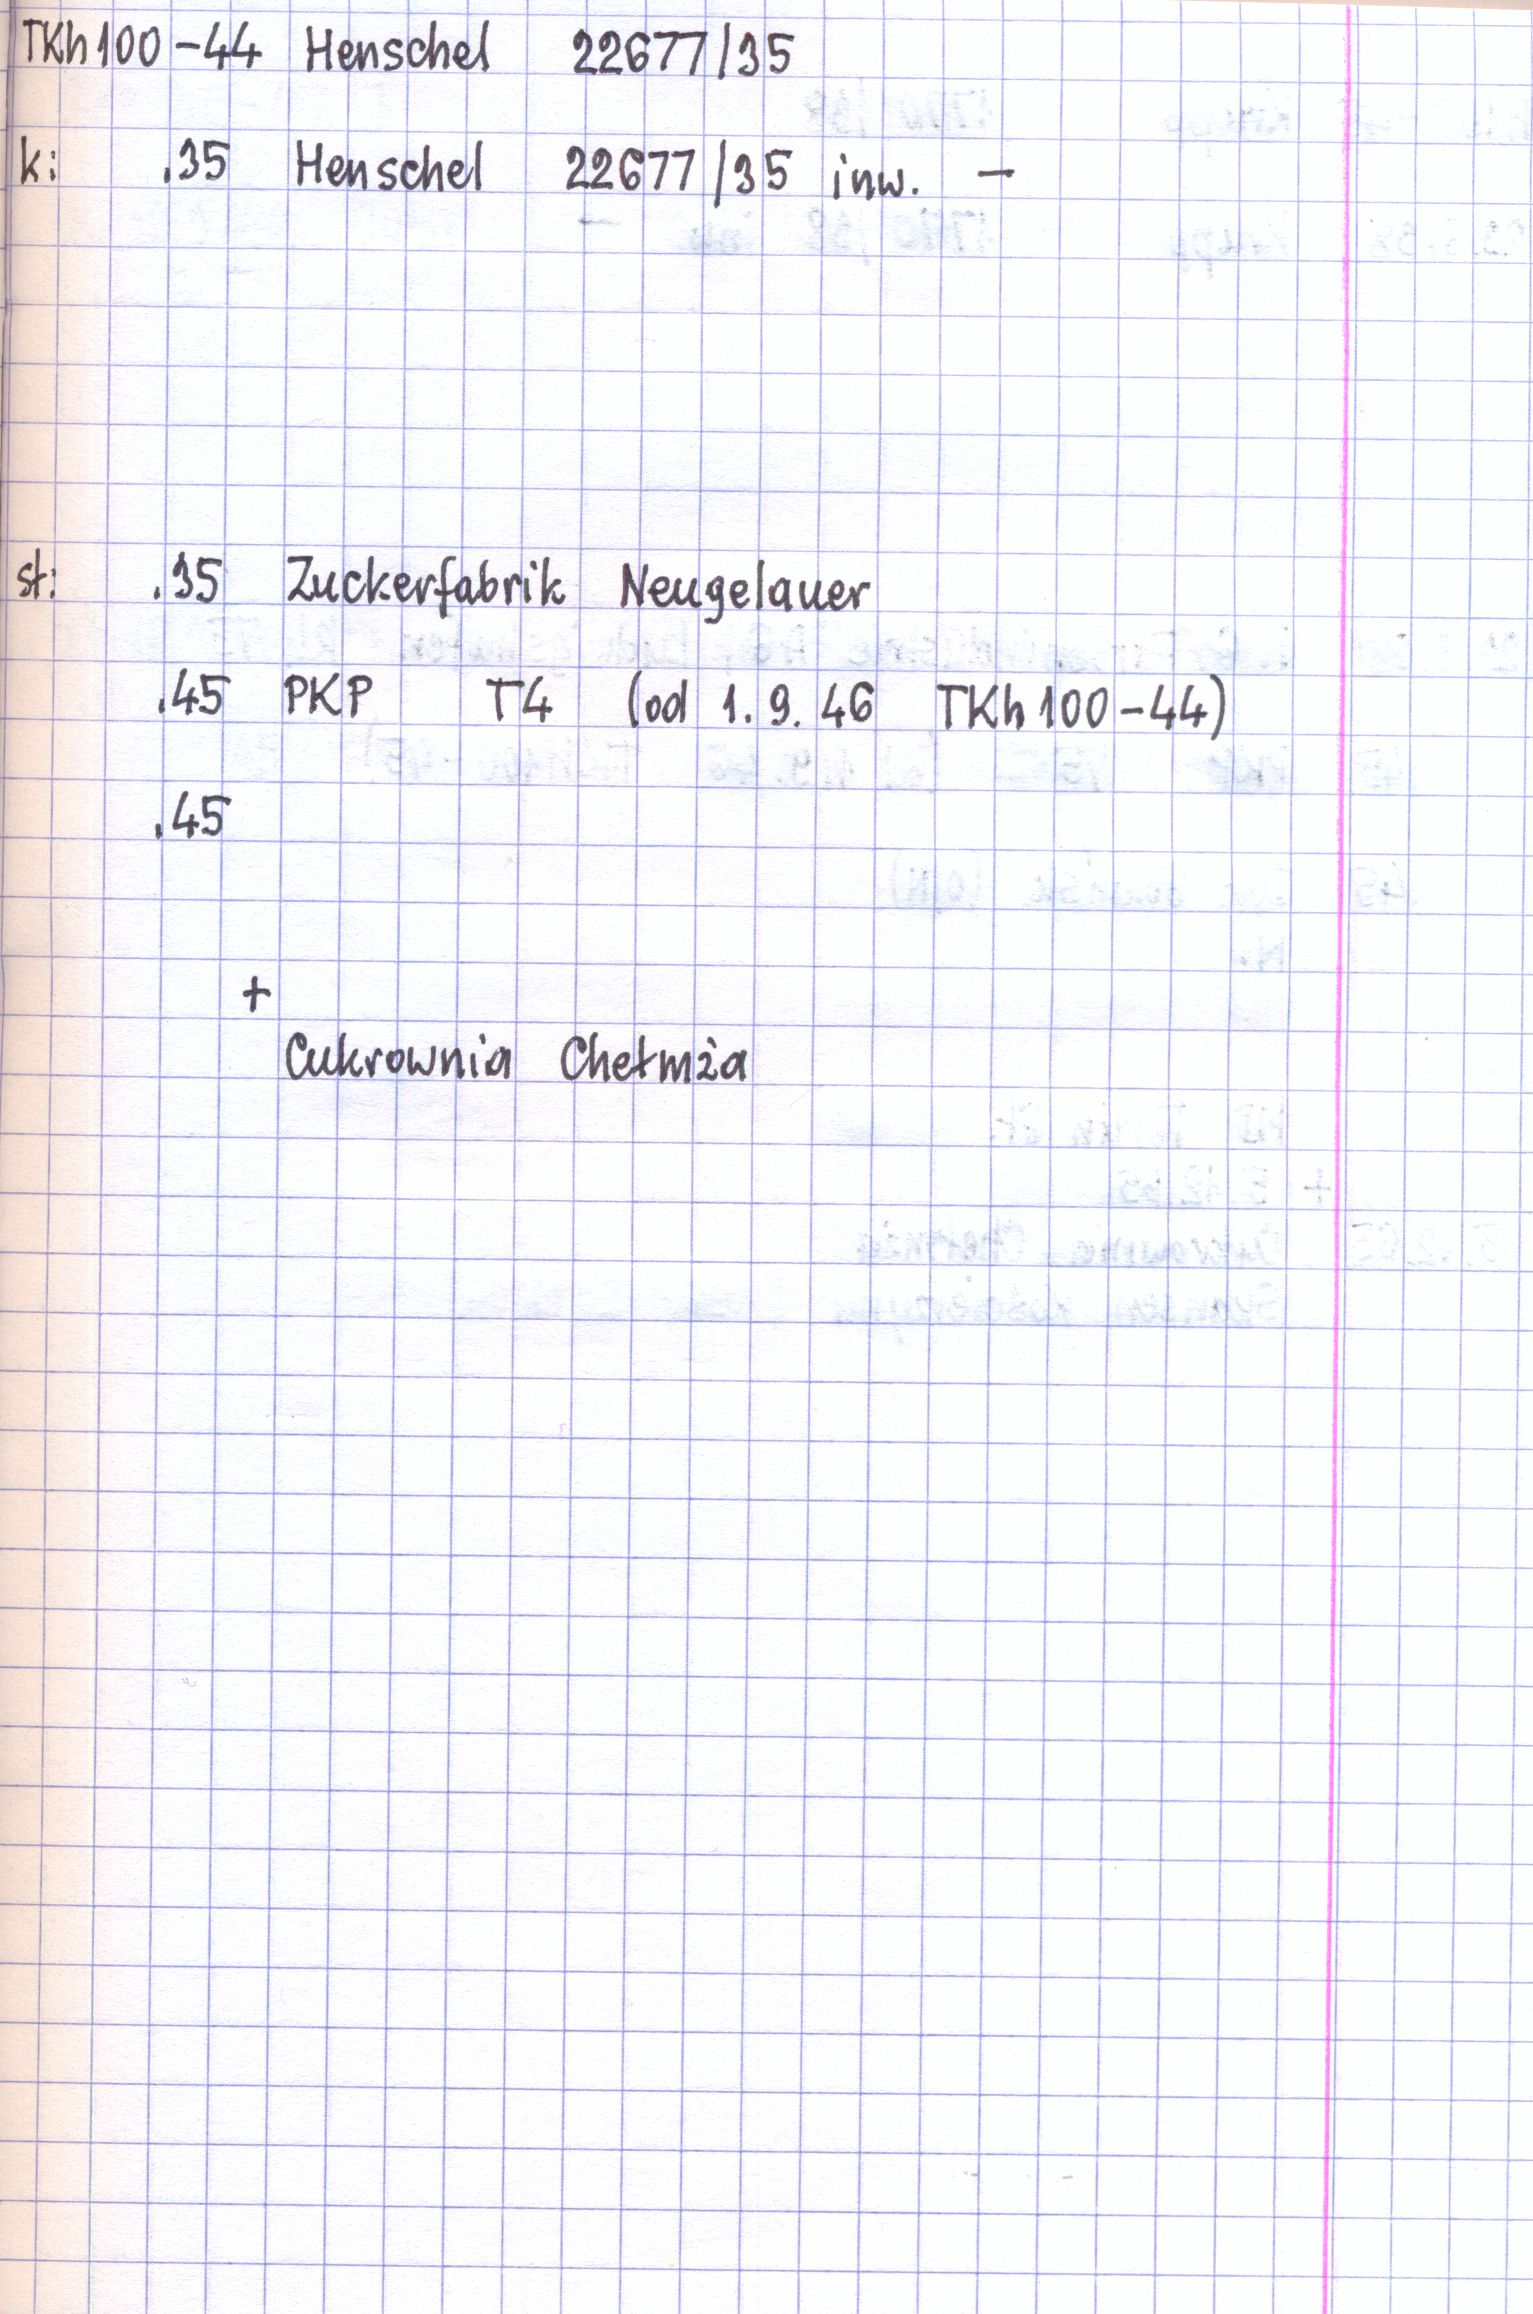 TKh100-44 Henschel 22677/35
k: .35 Henschel 22677/35 inw. -
st: .35 Zuckerfabrik Neugelauer
.45 PKP T4 (od 1.9.46 TKh100-44)
.45
+
Cukrownia Chełmża